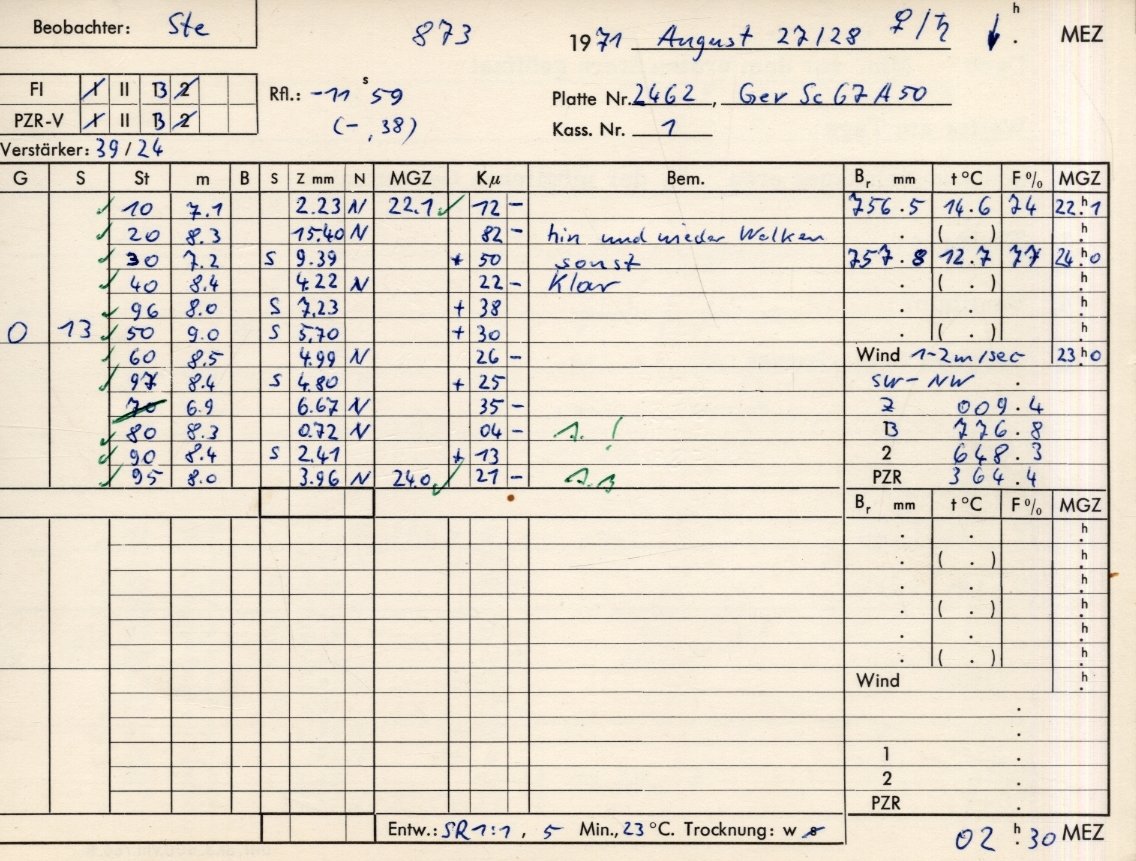 Beobachter: Ste
873
1971 August 27/28 ♀/♄ ↓ h . MEZ
FI I II B 2
PZR-V I II B 2
Rfl.: -11 s 59
(- ,38)
Platte Nr. 2462, Gev Sc 67 A 50
Kass. Nr. 1
Verstärker: 39/24
G S St m B S Z mm N MGZ Kμ Bem. Br mm t °C F % MGZ
✓ 10 7.1 2.23 N 22.1 ✓ 12 - 756.5 14.6 74 22 h 1
✓ 20 8.3 15.40 N 82 - hin und wieder Wolken . ( . ) h
✓ 30 7.2 S 9.39 + 50 sonst 757.8 12.7 77 24 h 0
✓ 40 8.4 4.22 N 22 - Klar . ( . ) h
✓ 96 8.0 S 7.23 + 38 . . h
0 13 ✓ 50 9.0 S 5.70 + 30 . ( . ) h
✓ 60 8.5 4.99 N 26 - Wind 1-2m/sec 23 h 0
✓ 97 8.4 S 4.80 + 25 SW-NW .
70 6.9 6.67 N 35 - Z 009.4
✓ 80 8.3 0.72 N 04 - 1. ! B 776.8
✓ 90 8.4 S 2.41 + 13 2 648.3
✓ 95 8.0 3.96 N 24.0 ✓ 21 - PZR 364.4
Br mm t °C F % MGZ
. . h
. ( . ) h
. . h
. ( . ) h
. . h
. ( . ) h
Wind h
.
.
1 .
2 .
PZR .
Entw.: SR 1:1, 5 Min., 23 °C. Trocknung: w s
02 h 30 MEZ